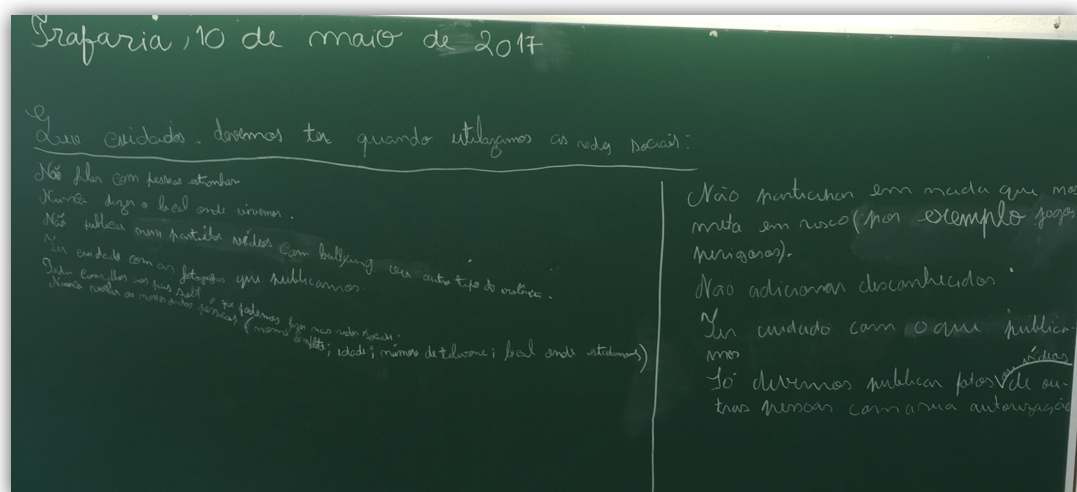 Trafaria, 10 de maio de 2017
Que cuidados devemos ter quando utilizamos as redes sociais:
Não falar com pessoas estranhas
Nunca dizer o local onde vivemos.
Não publicar nem partilhar vídeos com bullying ou outro tipo de violência.
Ter cuidado com as fotografias que publicamos.
Pedir conselhos aos pais sobre o que podemos fazer nas redes sociais.
Nunca revelar os nossos dados pessoais (nome completo; idade; número de telefone; local onde estudamos)
Não participar em nada que nos
meta em risco (por exemplo jogos
perigosos).
Não adicionar desconhecidos
Ter cuidado com o que publica-
mos
Só devemos publicar fotos ou vídeos de ou-
tras pessoas com a sua autorização